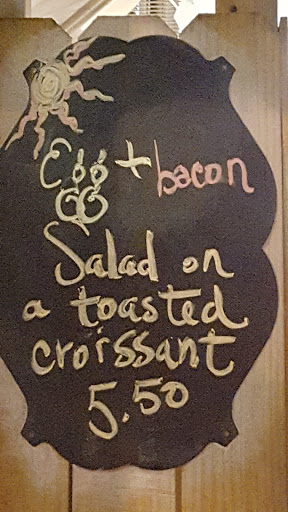 Egg + bacon
Salad on
a toasted
croissant
5.50